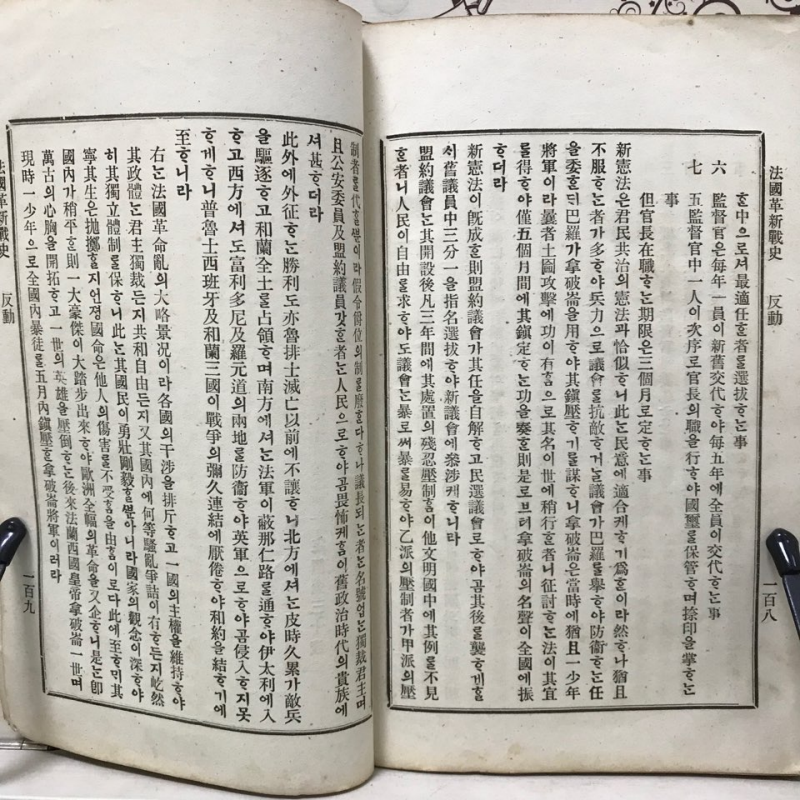 法國革新戰史 反動 一百八
ᄒᆞ中으로셔最適任ᄒᆞ者를選拔ᄒᆞᄂᆞᆫ事
六 監督官은每年一員이新舊交代ᄒᆞ야每五年에全員이交代ᄒᆞᄂᆞᆫ事
七 五監督官中一人이次序로官長의職을行ᄒᆞ야國璽를保管ᄒᆞ며捺印을掌ᄒᆞᄂᆞᆫ
事
但官長在職ᄒᆞᄂᆞᆫ期限은三個月로定ᄒᆞᄂᆞᆫ事
新憲法은君民共治의憲法과恰似ᄒᆞ니此ᄂᆞᆫ民意에適合케ᄒᆞ기爲ᄒᆞᆷ이라然ᄒᆞ나猶且
不服ᄒᆞᄂᆞᆫ者가多ᄒᆞ야兵力으로議會를抗敵ᄒᆞ거ᄂᆞᆯ議會가巴羅를擧ᄒᆞ야防衛ᄒᆞᄂᆞᆫ任
을委ᄒᆞᆫᄃᆡ巴羅가拿破崙을用ᄒᆞ야其鎭壓ᄒᆞ기를謀ᄒᆞ니拿破崙은當時에猶且一少年
將軍이라曩者土圖攻擊에功이有ᄒᆞᆷ으로其名이世에稍行ᄒᆞᆫ者ㅣ니征討ᄒᆞᄂᆞᆫ法이其宜
를得ᄒᆞ야僅五個月間에其鎭定ᄒᆞᄂᆞᆫ功을奏ᄒᆞᆫ則是로브터拿破崙의名聲이全國에振
ᄒᆞ더라
新憲法이旣成ᄒᆞᆫ則盟約議會가其任을自解ᄒᆞ고民選議會로ᄒᆞ야곰其後를襲ᄒᆞ게ᄒᆞᆯ
ᄉᆡ舊議員中三分一을指名選拔ᄒᆞ야新議會에參涉케ᄒᆞ니라
盟約議會ᄂᆞᆫ其開設後凡三年間에其處置의殘忍壓制ᄒᆞᆷ이他文明國中에其例를不見
ᄒᆞᆯ者ㅣ니人民이自由를求ᄒᆞ야도議會ᄂᆞᆫ暴로써暴를易ᄒᆞ야乙派의壓制者가甲派의壓
制者를代ᄒᆞᆯᄲᅮᆫ이라假令爵位의制를廢ᄒᆞ다ᄒᆞ나議長되ᄂᆞᆫ者ᄂᆞᆫ名號업ᄂᆞᆫ獨裁君主며
且公安委員及盟約議員갓ᄒᆞᆫ者ᄂᆞᆫ人民으로ᄒᆞ야곰畏怖케ᄒᆞᆷ이舊政治時代의貴族에
셔甚ᄒᆞ더라
此外에外征ᄒᆞᄂᆞᆫ勝利도亦魯排士滅亡以前에不讓ᄒᆞ니北方에셔ᄂᆞᆫ皮時久累가敵兵
을驅逐ᄒᆞ고和蘭全土를占領ᄒᆞ며南方에셔ᄂᆞᆫ法軍이敲那仁路를通ᄒᆞ야伊太利에入
ᄒᆞ고西方에셔도富利多尼及羅元道의兩地를防衛ᄒᆞ야英軍으로ᄒᆞ야곰侵入ᄒᆞ지못
ᄒᆞ게ᄒᆞ니普魯士西班牙及和蘭三國이戰爭의彌久連結에厭倦ᄒᆞ야和約을結ᄒᆞ기에
至ᄒᆞ니라
右ᄂᆞᆫ法國革命亂의大略景況이라各國의干涉을排斥ᄒᆞ고一國의主權을維持ᄒᆞ야
其政體ᄂᆞᆫ君主獨裁든지共和自由든지又其國內에何等騷亂爭詰이有ᄒᆞ든지屹然
히其獨立體制를保ᄒᆞ니此ᄂᆞᆫ其國民이勇壯剛毅ᄒᆞᆯᄲᅮᆫ아니라國家의觀念이深ᄒᆞ야
寧其生은抛擲ᄒᆞᆯ지언졍國命은他人의傷害를不受ᄒᆞᆷ을由ᄒᆞᆷ이로다此에至ᄒᆞ야ᄆᆡ其
國內가稍平ᄒᆞᆫ則一大豪傑이大踏步出來ᄒᆞ야歐洲全幅의革命을又企ᄒᆞ니是ᄂᆞᆫ卽
萬古의心胸을開拓ᄒᆞ고一世의英雄을壓倒ᄒᆞᄂᆞᆫ後來法蘭西國皇帝拿破崙一世며
現時一少年으로全國內暴徒를五月內鎭壓ᄒᆞᆫ拿破崙將軍이러라
法國革新戰史 反動 一百九